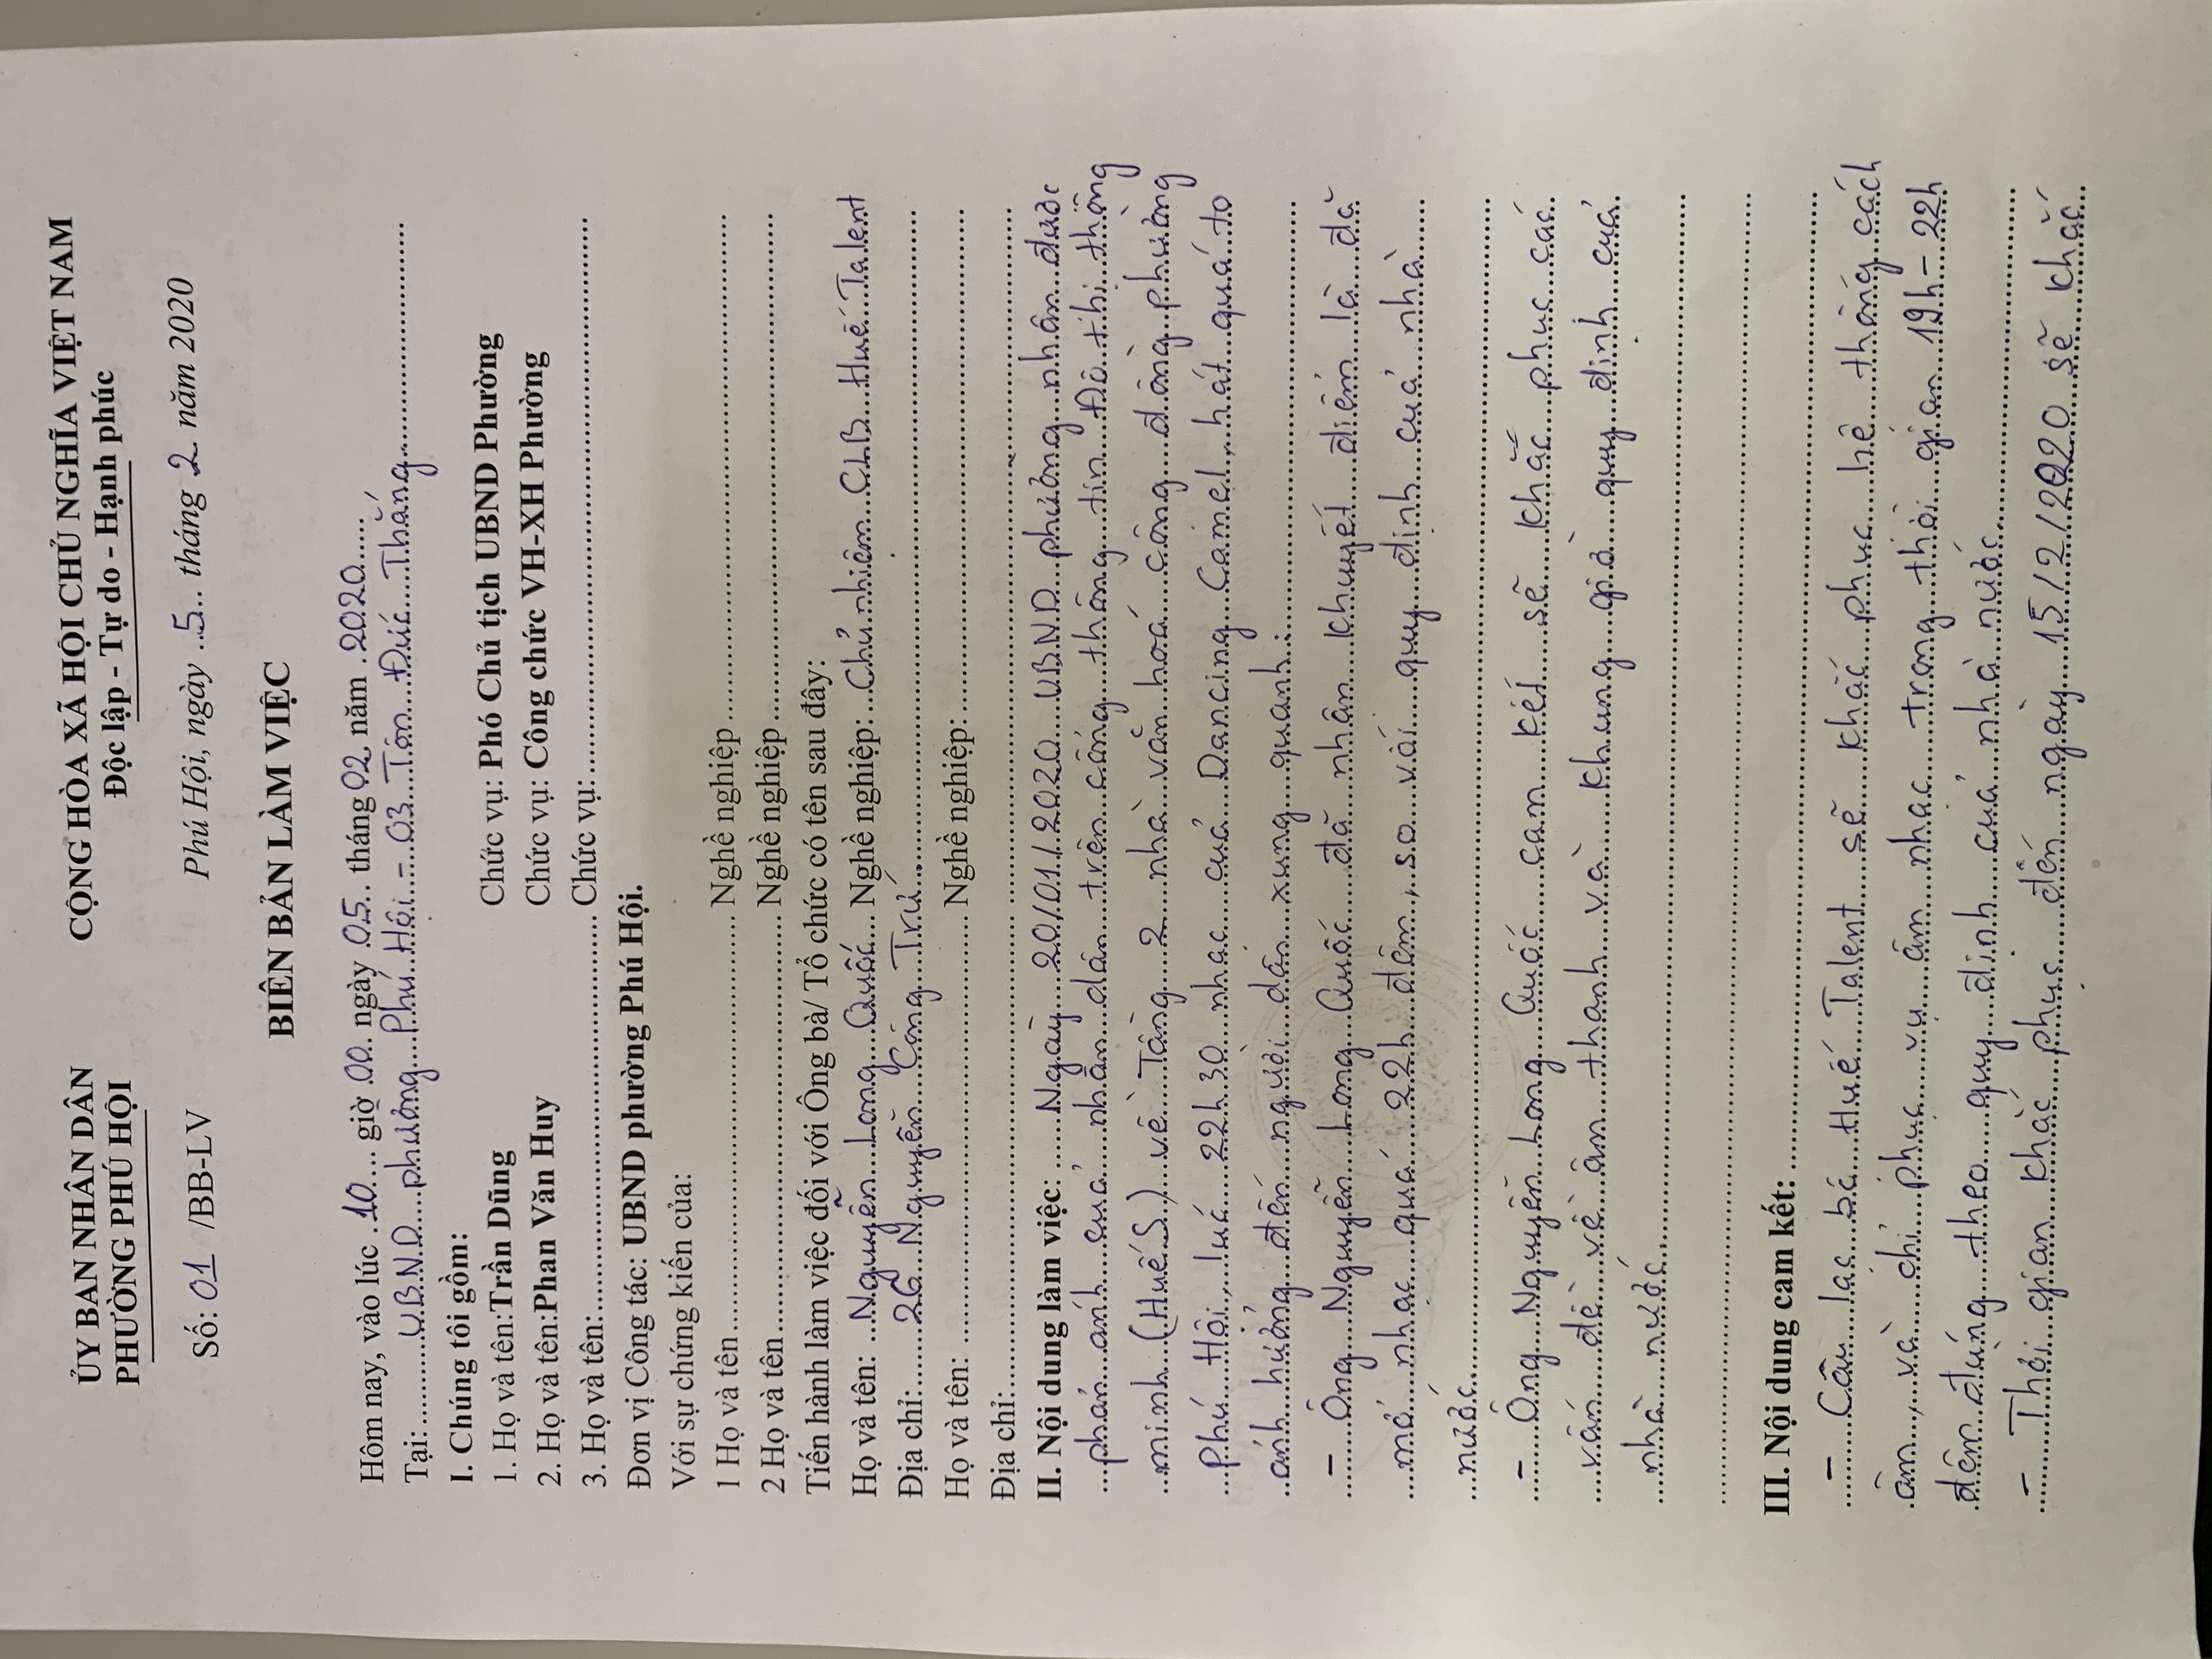 ỦY BAN NHÂN DÂN
PHƯỜNG PHÚ HỘI
CỘNG HÒA XÃ HỘI CHỦ NGHĨA VIỆT NAM
Độc lập - Tự do - Hạnh phúc
Số: 01 /BB-LV
Phú Hội, ngày .5.. tháng 2 năm 2020
BIÊN BẢN LÀM VIỆC
Hôm nay, vào lúc .10... giờ .00. ngày .05.. tháng 02 năm .2020.....
Tại:.......UBND...phường...Phú Hội.-...03...Tôn...Đức...Thắng........
I. Chúng tôi gồm:
1. Họ và tên:Trần Dũng Chức vụ: Phó Chủ tịch UBND Phường
2. Họ và tên:Phan Văn Huy Chức vụ: Công chức VH-XH Phường
3. Họ và tên:........ Chức vụ:........
Đơn vị Công tác: UBND phường Phú Hội.
Với sự chứng kiến của:
1 Họ và tên........ Nghề nghiệp........
2 Họ và tên........ Nghề nghiệp........
Tiến hành làm việc đối với Ông bà/ Tổ chức có tên sau đây:
Họ và tên: ..Nguyễn...Long...Quốc... Nghề nghiệp:...Chủ nhiệm...CLB...Huế...Talent
Địa chỉ:......26...Nguyễn...Công...Trứ........
Họ và tên: ........ Nghề nghiệp:........
Địa chỉ:........
II. Nội dung làm việc: ......Ngày....20/01/2020...UBND...phường...nhận...được
...phản...ánh...của...nhân...dân...trên...cổng...thông...tin...Đô...thị...thông
...minh...(HuếS)...về...Tầng...2...nhà...văn...hoá...cộng...đồng...phường
...Phú...Hội,...lúc...22h30...nhạc...của...Dancing...Camel,...hát...quá...to
...ảnh...hưởng...đến...người...dân...xung...quanh........
-....Ông...Nguyễn...Long...Quốc...đã...nhận...khuyết...điểm...là...đã
...mở...nhạc...quá...22h...đêm,...so...với...quy...định...của...nhà......
...nước........
-....Ông...Nguyễn...Long...Quốc...cam...kết...sẽ...khắc...phục...các
...vấn...đề...về...âm...thanh...và...khung...giờ...quy...định...của
...nhà...nước........
III. Nội dung cam kết: ........
-....Câu...lạc...bộ...Huế...Talent...sẽ...khắc...phục...hệ...thống...cách
âm...,và...chỉ...phục...vụ...âm...nhạc...trong...thời...gian...19h-22h
đêm...đúng...theo...quy...định...của...nhà...nước........
-....Thời...gian...khắc...phục...đến...ngày...15/2/2020...sẽ...khắc